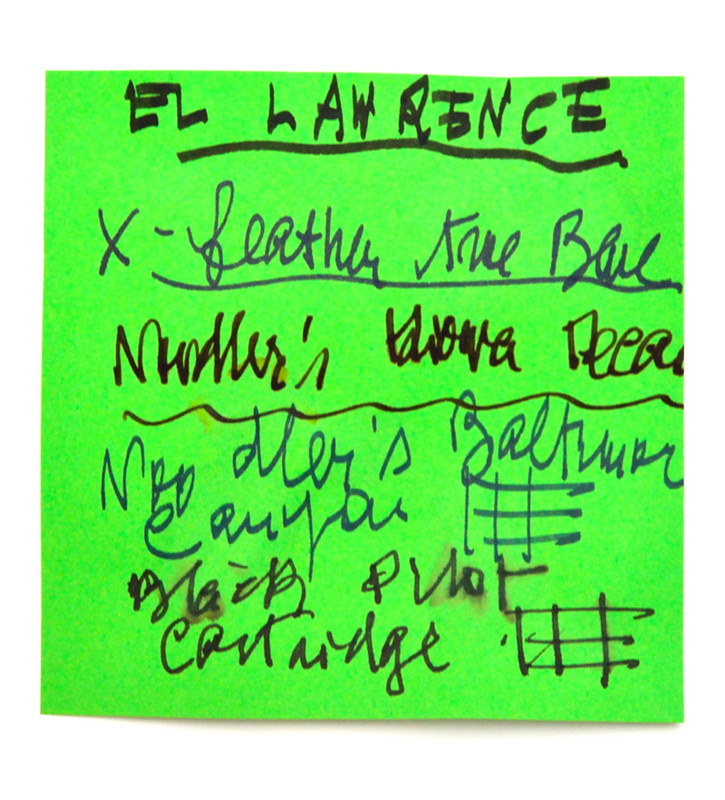 EL LAWRENCE
X-feather True Blue
Noodler's Kiowa Pecan
Noodler's Baltimor
Canyon
Black Pilot
Cartridge